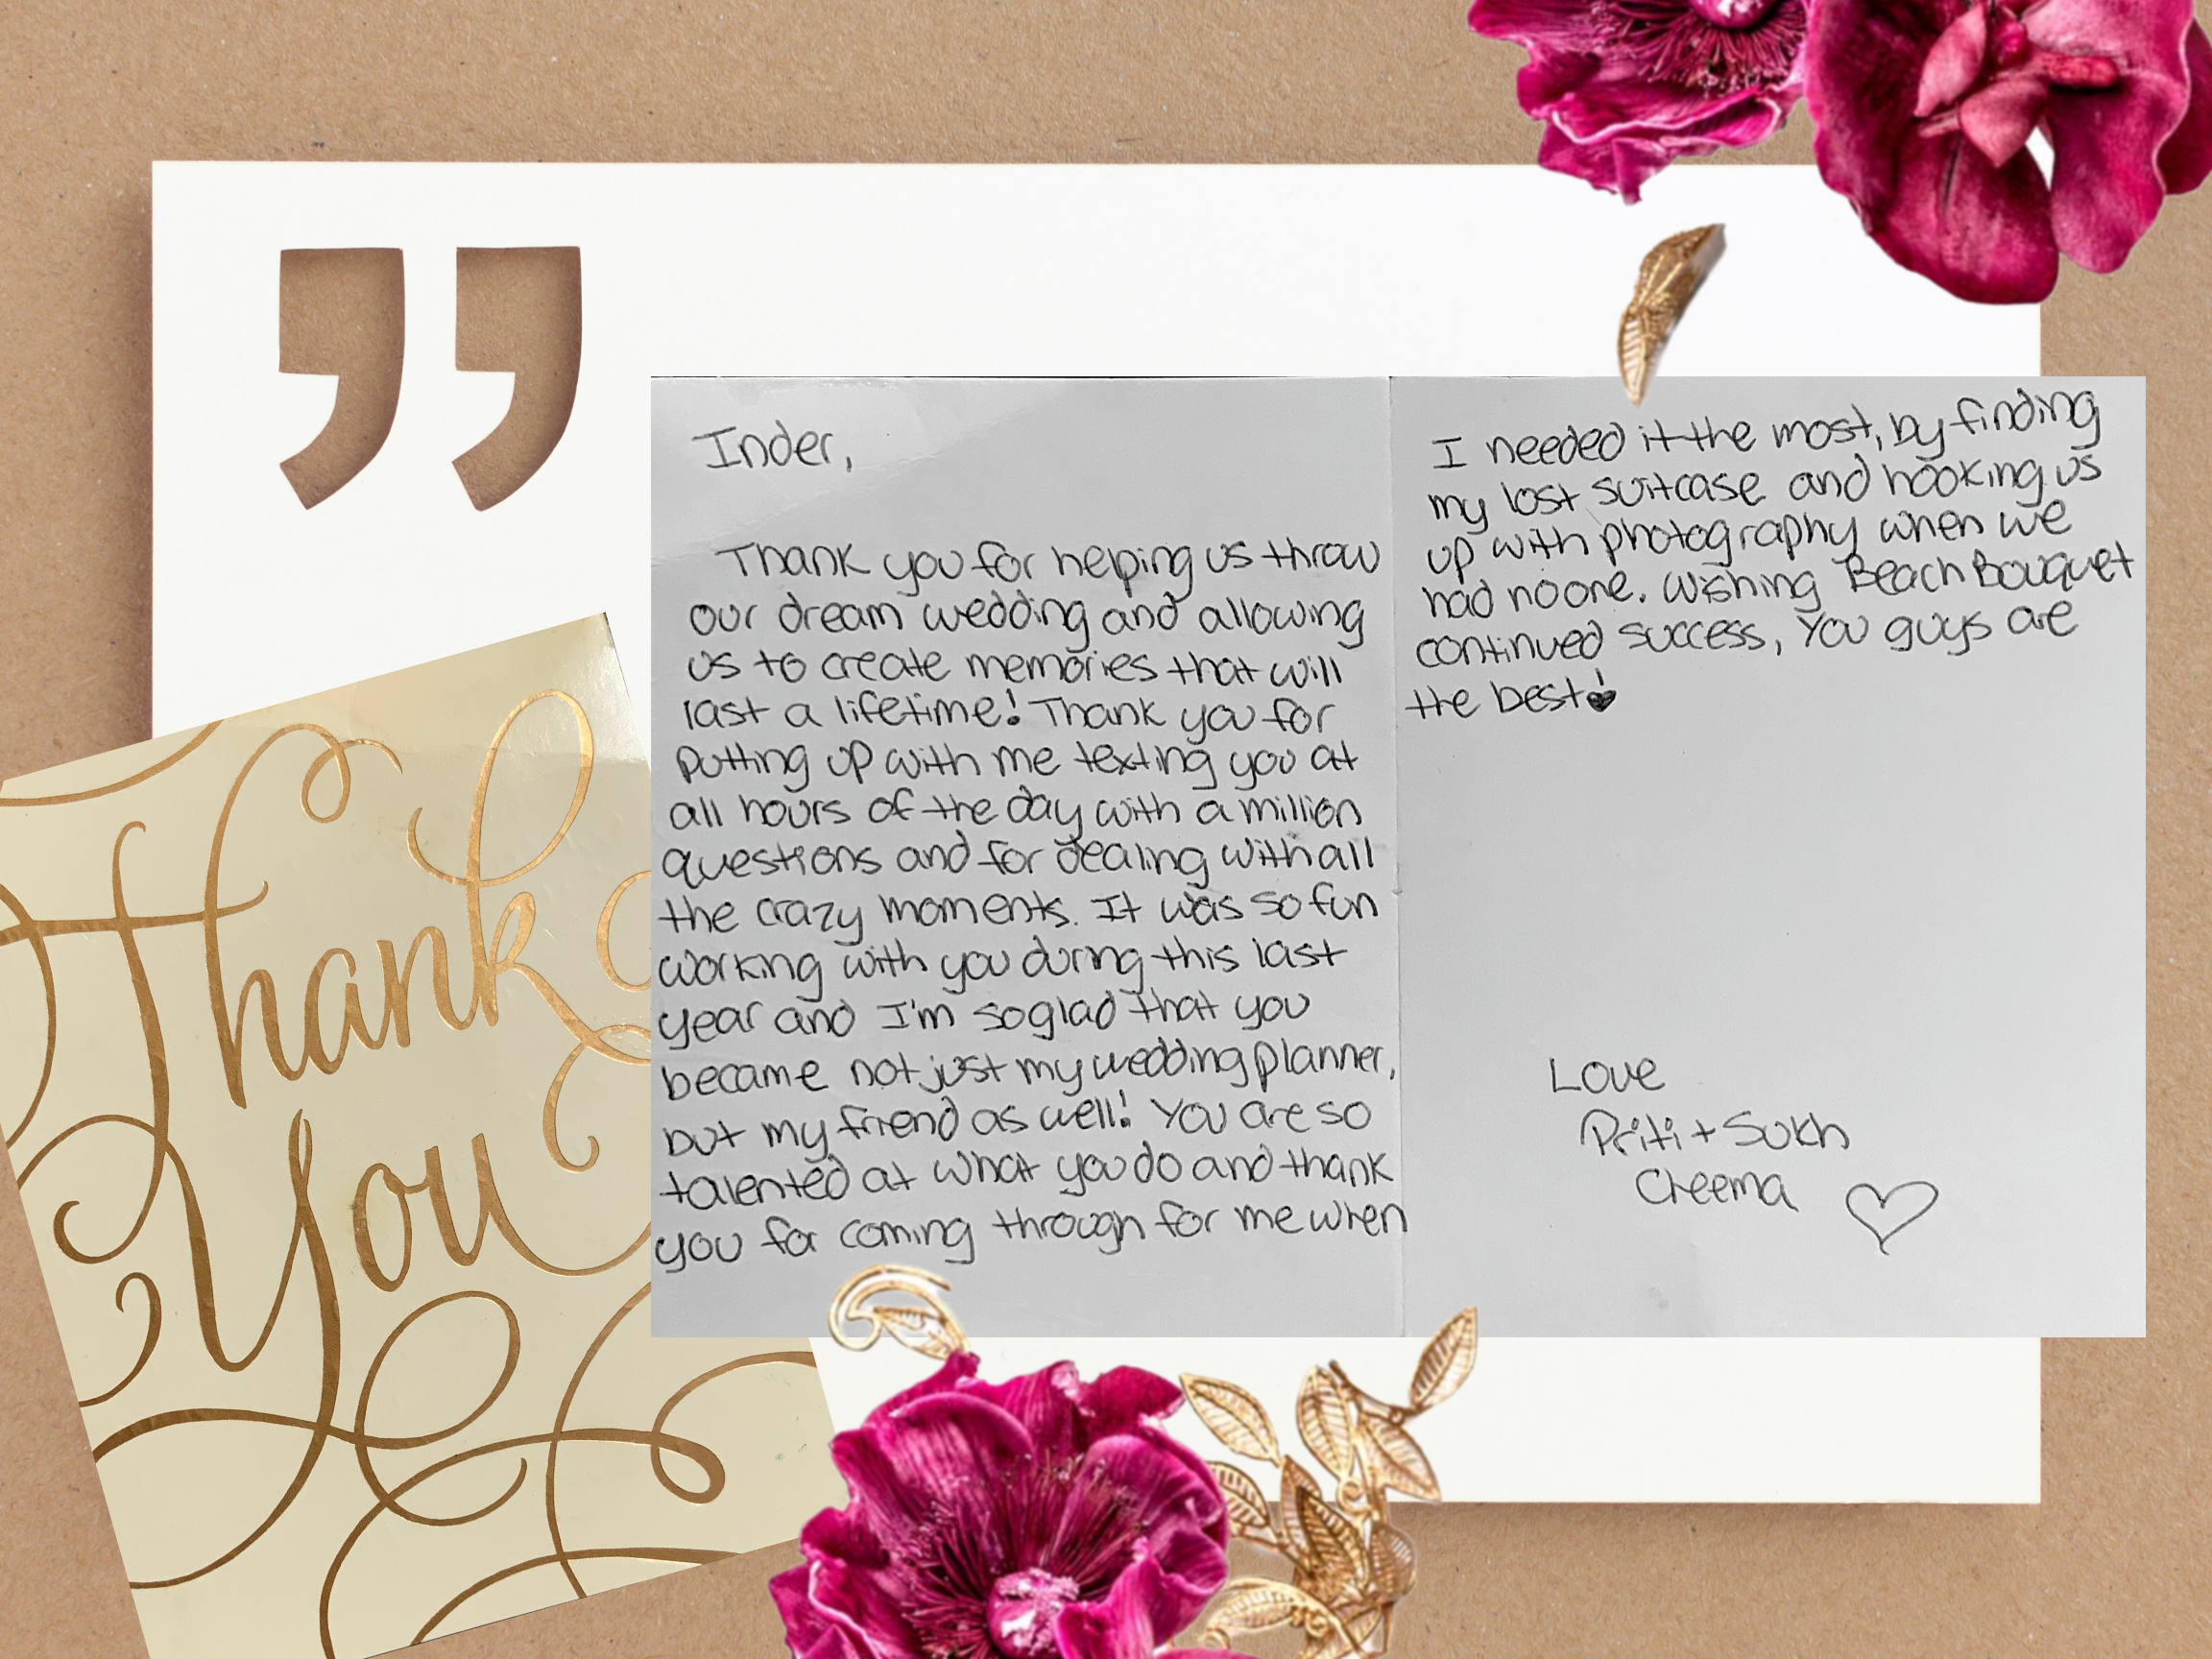 Thank
You
Inder,
Thank you for helping us throw
our dream wedding and allowing
us to create memories that will
last a lifetime! Thank you for
putting up with me texting you at
all hours of the day with a million
questions and for dealing with all
the crazy moments. It was so fun
working with you during this last
year and I'm so glad that you
became not just my wedding planner,
but my friend as well! You are so
talented at what you do and thank
you for coming through for me when
I needed it the most, by finding
my lost suitcase and hooking us
up with photography when we
had no one. Wishing Beach Bouquet
continued success, You guys are
the best!
Love
Priti + Sukh
Cheema